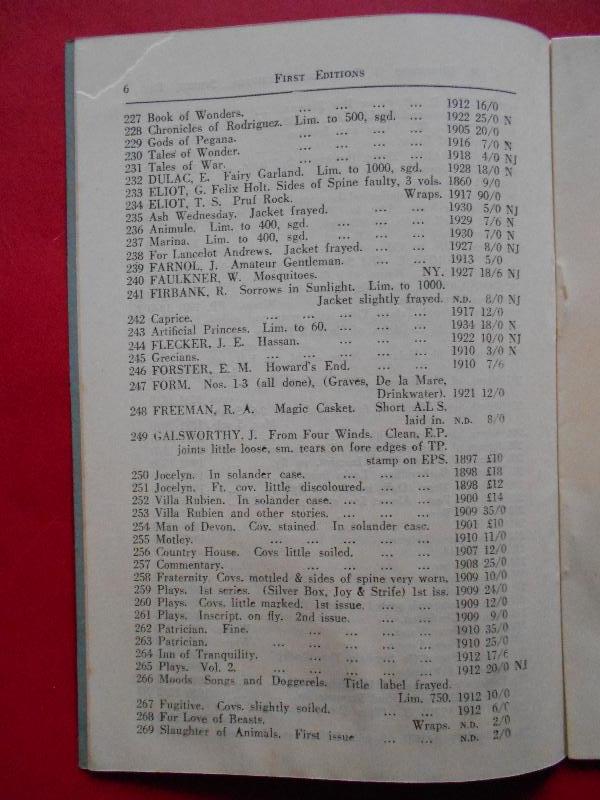 6
FIRST EDITIONS
227 Book of Wonders. ... ... ... ... 1912 16/0
228 Chronicles of Rodriguez. Lim. to 500, sgd. ... 1922 25/0 N
229 Gods of Pegana. ... ... ... ... 1905 20/0
230 Tales of Wonder. ... ... ... ... 1916 7/0 N
231 Tales of War. ... ... ... ... 1918 4/0 NJ
232 DULAC, E. Fairy Garland. Lim. to 1000, sgd. 1928 18/0 N
233 ELIOT, G. Felix Holt. Sides of Spine faulty, 3 vols. 1860 9/0
234 ELIOT, T. S. Pruf Rock. Wraps. 1917 90/0
235 Ash Wednesday. Jacket frayed. ... ... 1930 5/0 NJ
236 Animule. Lim. to 400, sgd. ... ... ... 1929 7/6 N
237 Marina. Lim. to 400, sgd. ... ... ... 1930 7/0 N
238 For Lancelot Andrews. Jacket frayed. ... ... 1927 8/0 NJ
239 FARNOL, J. Amateur Gentleman. ... ... 1913 5/0
240 FAULKNER, W. Mosquitoes. NY. 1927 18/6 NJ
241 FIRBANK, R. Sorrows in Sunlight. Lim. to 1000.
Jacket slightly frayed. N.D. 8/0 NJ
242 Caprice. ... ... ... ... ... 1917 12/0
243 Artificial Princess. Lim. to 60. ... ... ... 1934 18/0 N
244 FLECKER, J. E. Hassan. ... ... ... 1922 10/0 NJ
245 Grecians. ... ... ... ... ... 1910 3/0 N
246 FORSTER, E. M. Howard's End. ... ... 1910 7/6
247 FORM. Nos. 1-3 (all done), (Graves, De la Mare,
Drinkwater). 1921 12/0
248 FREEMAN, R. A. Magic Casket. Short A.L S.
laid in. N.D. 8/0
249 GALSWORTHY, J. From Four Winds. Clean, E.P.
joints little loose, sm. tears on fore edges of TP.
stamp on EPS. 1897 £10
250 Jocelyn. In solander case. ... ... ... 1898 £18
251 Jocelyn. Ft. cov. little discoloured. ... ... 1898 £12
252 Villa Rubien. In solander case. ... ... ... 1900 £14
253 Villa Rubien and other stories. ... ... ... 1909 35/0
254 Man of Devon. Cov. stained. In solander case. 1901 £10
255 Motley. ... ... ... ... ... 1910 11/0
256 Country House. Covs little soiled. ... ... 1907 12/0
257 Commentary. ... ... ... ... 1908 25/0
258 Fraternity. Covs. mottled & sides of spine very worn. 1909 10/0
259 Plays. 1st series. (Silver Box, Joy & Strife) 1st iss. 1909 24/0
260 Plays. Covs. little marked. 1st issue. ... ... 1909 12/0
261 Plays. Inscript. on fly. 2nd issue. ... ... 1909 9/0
262 Patrician. Fine. ... ... ... ... 1910 35/0
263 Patrician. ... ... ... ... ... 1910 25/0
264 Inn of Tranquility. ... ... ... ... 1912 17/6
265 Plays. Vol. 2. ... ... ... ... ... 1912 20/0 NJ
266 Moods Songs and Doggerels. Title label frayed.
Lim. 750. 1912 10/0
267 Fugitive. Covs. slightly soiled. ... ... 1912 6/0
268 For Love of Beasts. Wraps. N.D. 2/0
269 Slaughter of Animals. First issue ... ... N.D. 2/0